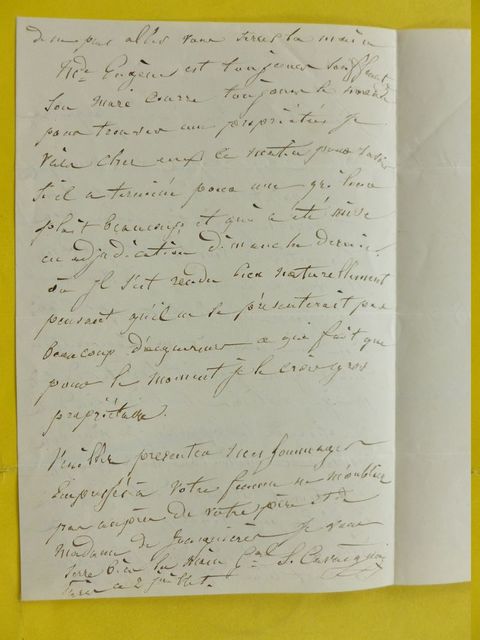 de ne pas aller vous serrer la main
Mde Eugène est toujours souffrante
son mari courre toujours le monde
pour trouver une propriété, je
vais chez eux ce matin pour savoir
s'il a terminé pour une qui leur
plait beaucoup et qui a été mise
en adjudication dimanche dernier
où il s'est rendu bien naturellement
pensant qu'il ne se présenterait pas
beaucoup d'acquereurs ce qui fait que
pour le moment je le crois gros
propriétaire.
Veuillez presenter mes hommages
Empressés à votre femme ne m'oubliez
pas auprès de votre père et de
Madame de je vous
serre bien la main Gal S.
Paris ce 2 juillet.